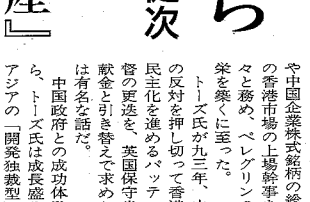 ら
産』
次
や中国企業株式銘柄の総
の香港市場の上場幹事を
々と務め、ペレグリンの
栄を築くに至った。
トーズ氏が九三年、
の反対を押し切って香港
民主化を進めるパッテ
督の更迭を、英国保守党
献金と引き替えで求め
は有名な話だ。
中国政府との成功体
ら、トーズ氏は成長盛
アジアの「開発独裁型